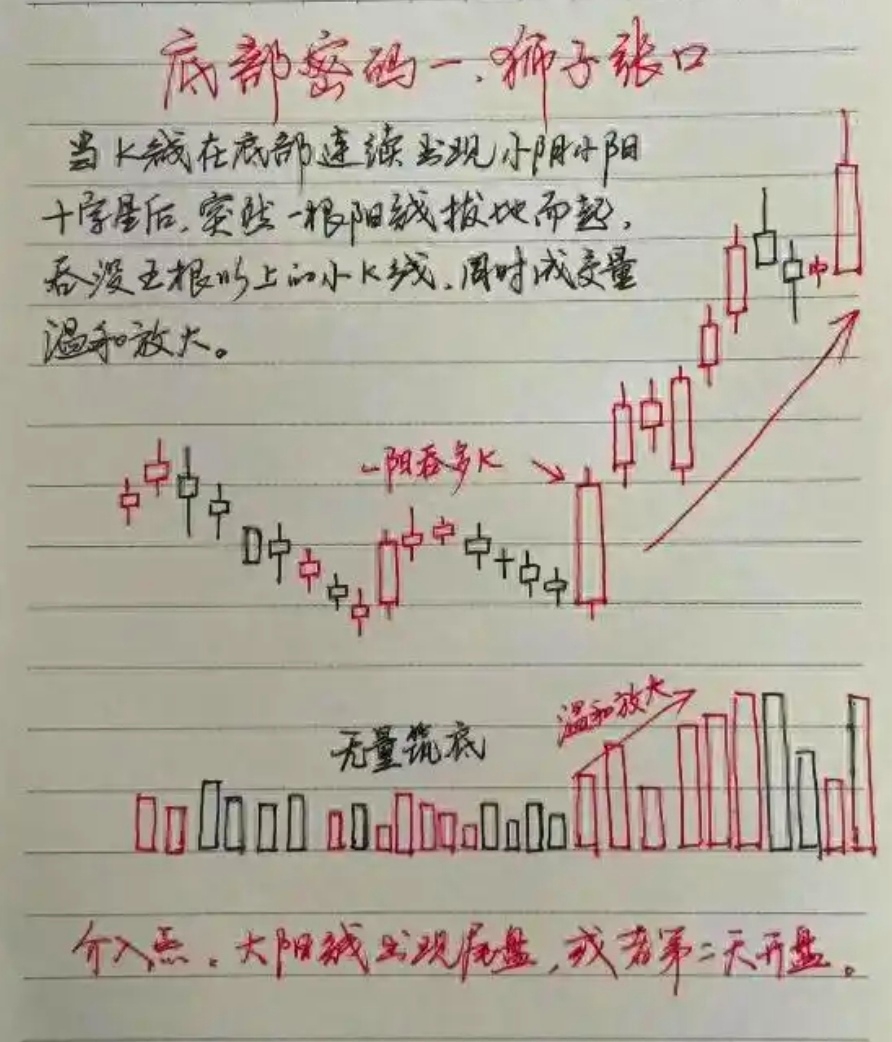 底部密码一、狮子张口
当K线在底部连续出现小阴小阳
十字星后,突然一根阳线拔地而起,
吞没五根以上的小K线,同时成交量
温和放大。
一阳吞多K
温和放大
无量筑底
介入点。大阳线出现尾盘,或者第二天开盘。